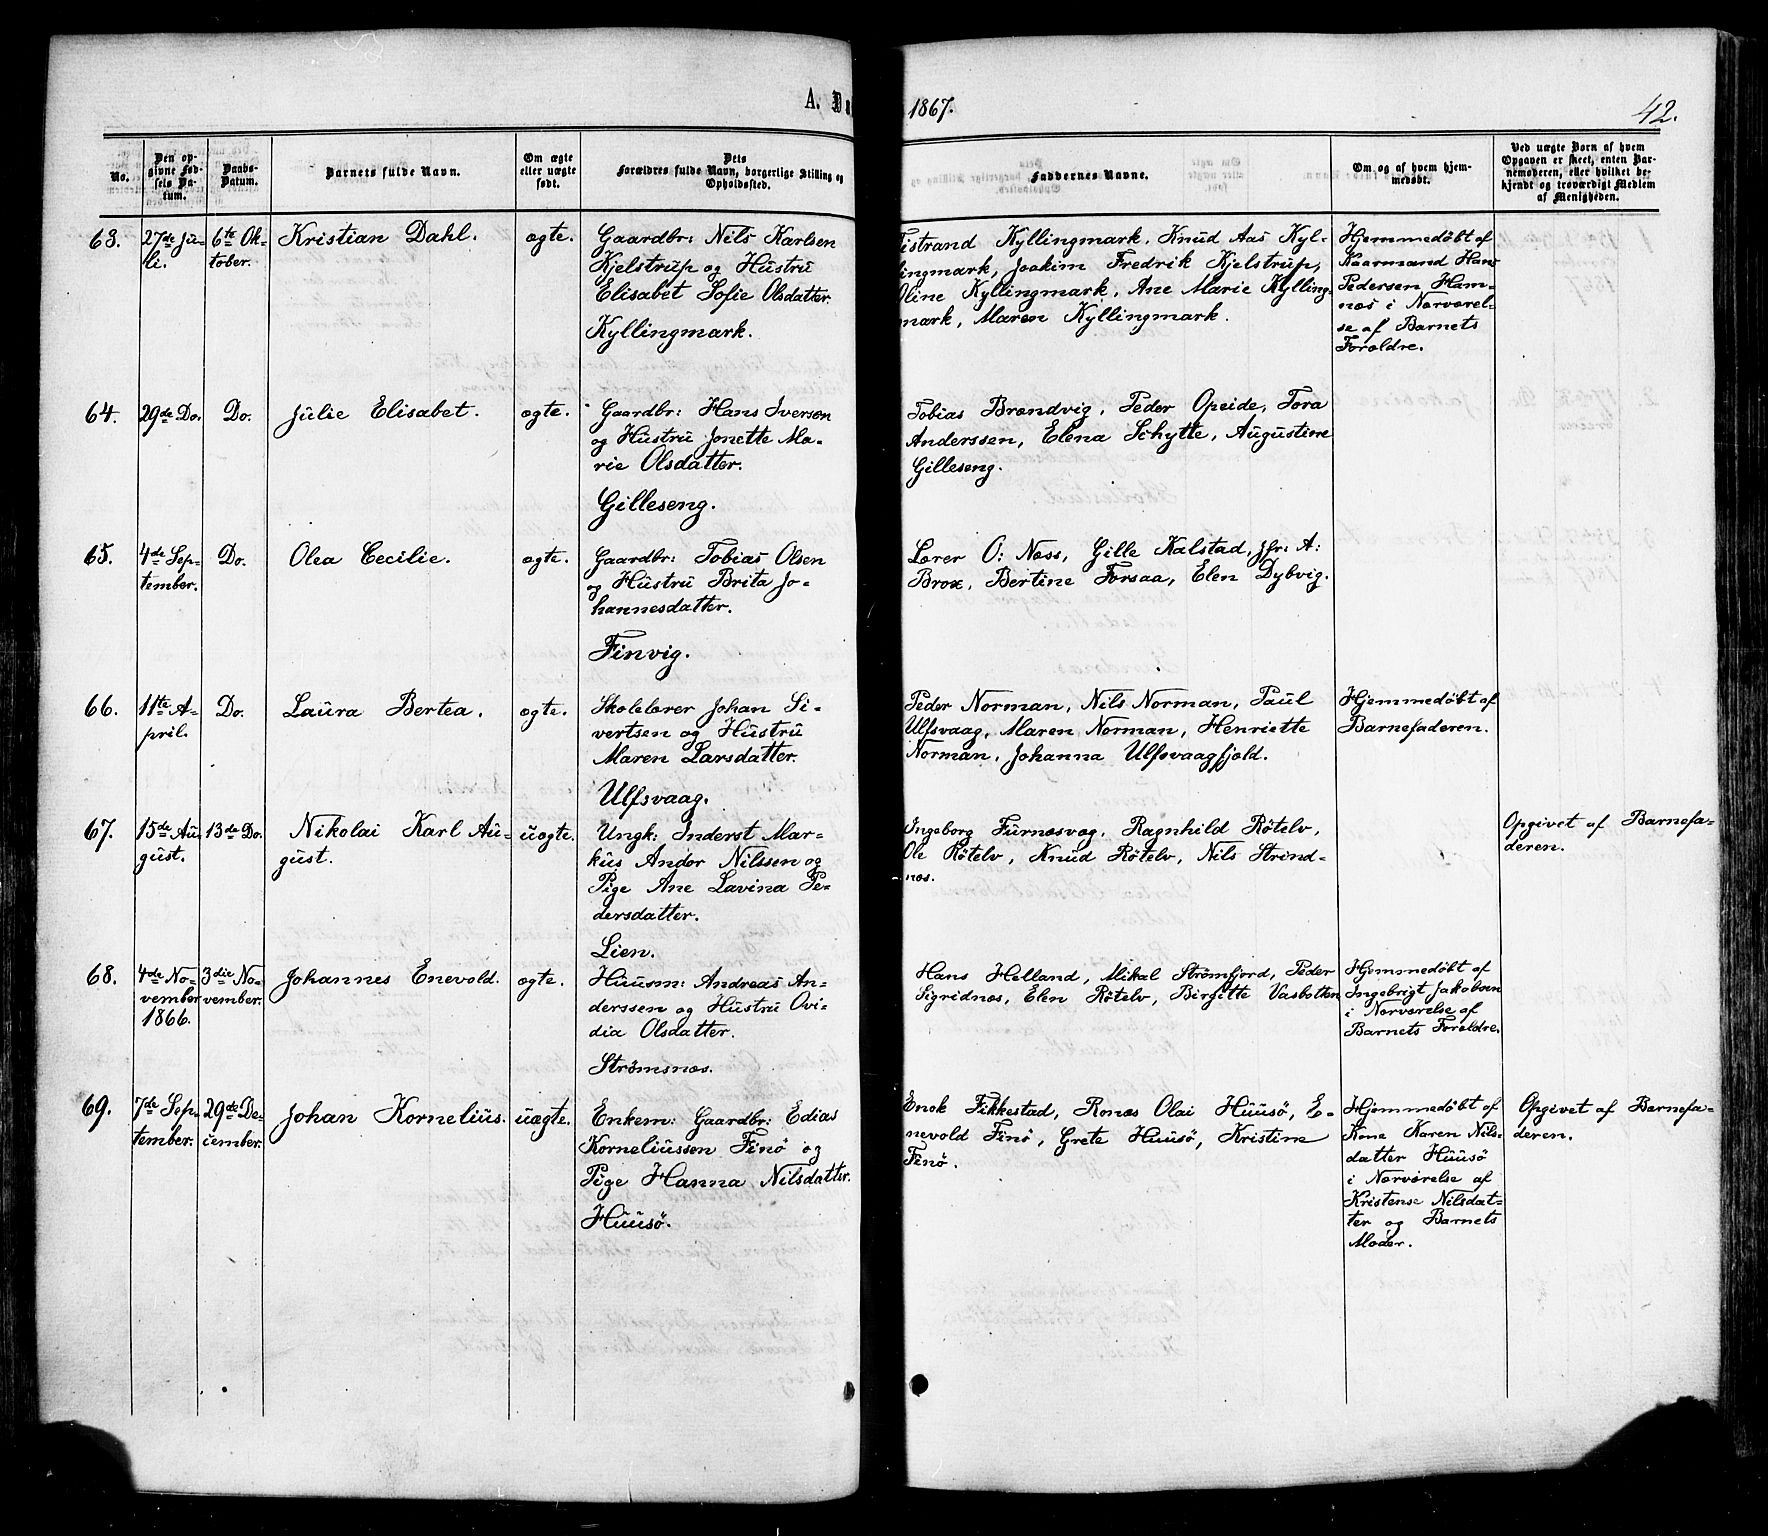 A. Dø
1867.
42.
No.
Den op-
givne Fød-
sels Da-
tum.
Daabs-
Datum.
Barnets fulde Navn.
Om ægte
eller uægte
født.
Dets
Forældres fulde Navn, borgerlige Stilling og
Opholdssted.
Faddernes Navne.
Om og af hvem hjem-
medøbt.
Ved uægte Børn af hvem
Opgaven er skeet, enten Bar-
nemoderen, eller hvilket be-
kjendt og troværdigt Medlem
af Menigheden.
63.
27de Ju-
li.
6te Ok-
tober.
Kristian Dahl.
ægte.
Gaardbr: Nils Karlsen
Kjelstrup og Hustru
Elisabet Sofie Olsdatter.
Kyllingmark.
Tistrand Kyllingmark, Knud Aas Kyl-
lingmark, Joakim Fredrik Kjelstrup,
Oline Kyllingmark, Ane Marie Kylling-
mark, Maren Kyllingmark.
Hjemmedøbt af
Kaarmand Hans
Pedersen Ham-
næs i Nærværel-
se af Barnets
Forældre.
64.
29de Do.
Do.
Julie Elisabet.
ægte.
Gaardbr: Hans Iversen
og Hustru Jonette Ma-
rie Olsdatter.
Gilleseng.
Tobias Brændvig, Peder Opeide, Tora
Anderssen, Elena Schytte, Augustine
Gilleseng.
65.
4de Sep-
tember.
Do.
Olea Cecilie.
ægte.
Gaardbr: Tobias Olsen
og Hustru Brita Jo-
hannesdatter.
Finvig.
Lærer O: Næss, Gille Kalstad, Jfr: A:
Brox, Bertine Forsaa, Elen Dybvig.
66.
11te A-
pril.
Do.
Laura Bertea.
ægte.
Skolelærer Johan Si-
vertsen og Hustru
Maren Larsdatter.
Ulfsvaag.
Peder Norman, Nils Norman, Paul
Ulfsvaag, Maren Norman, Henriette
Norman, Johanna Ulfsvaagfjeld.
Hjemmedøbt af
Barnefaderen.
67.
15de Au-
gust.
13de Do.
Nikolai Karl Au-
gust.
uægte.
Ungk: Inderst Mar-
kus Andor Nilssen og
Pige Ane Lavina Pe-
dersdatter.
Lien.
Ingeborg Furnæsvag, Ragnhild Røtelv,
Ole Røtelv, Knud Røtelv, Nils Strind-
næs.
Opgivet af Barnefa-
deren.
68.
4de No-
vember
1866.
3die No-
vember.
Johannes Enevold.
ægte.
Huusm: Andreas An-
derssen og Hustru Ovi-
dia Olsdatter.
Strømsnæs.
Hans Helland, Mikal Strømfjord, Peder
Sigridnæs, Elen Røtelv, Birgitte Vasbotten.
Hjemmedøbt af
Ingebrigt Jakobsen
i Nærværelse af
Barnets Forældre.
69.
7de Sep-
tember.
29de De-
cember.
Johan Kornelius.
uægte.
Enkem: Gaardbr: Edias
Korneliussen Finø og
Pige Hanna Nilsdatter.
Huusø.
Enok Fikkestad, Ronæs Olai Huusø, E-
nevold Finø, Grete Huusø, Kristine
Finø.
Hjemmedøbt af
Kone Karen Nils-
datter Huusø
i Nærværelse af
Kristense Nilsdat-
ter og Barnets
Moder.
Opgivet af Barnefa-
deren.